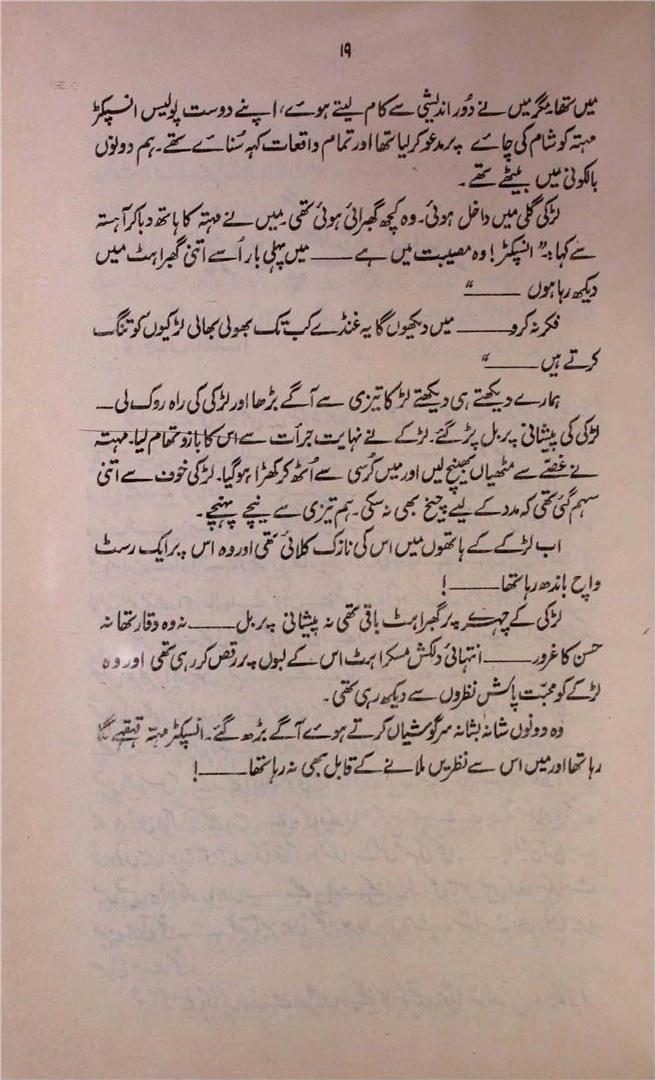 ۱۹
میں تھا۔ مگر میں نے دُور اندیشی سے کام لیتے ہوئے، اپنے دوست پولیس انسپکٹر
مہتہ کو شام کی چائے پر مدعو کر لیا تھا اور تمام واقعات کہہ سُنائے تھے۔ ہم دونوں
بالکونی میں بیٹھے تھے۔
لڑکی گلی میں داخل ہوئی۔ وہ کچھ گھبرائی ہوئی تھی۔ میں نے مہتہ کا ہاتھ دبا کر آہستہ
سے کہا:۔ ”انسپکٹر! وہ مصیبت میں ہے ــــــ میں پہلی بار اُسے اتنی گھبراہٹ میں
دیکھ رہا ہوں ــــــ“
فکر نہ کرو ــــــ میں دیکھوں گا یہ غنڈے کب تک بھولی بھالی لڑکیوں کو تنگ
کرتے ہیں ــــــ“
ہمارے دیکھتے ہی دیکھتے لڑکا تیزی سے آگے بڑھا اور لڑکی کی راہ روک لی ــ
لڑکی کی پیشانی پر بل پڑ گئے۔ لڑکے نے نہایت جرأت سے اس کا بازو تھام لیا۔ مہتہ
نے غصّے سے مٹھیاں بھینچ لیں اور میں کُرسی سے اُٹھ کر کھڑا ہو گیا۔ لڑکی خوف سے اتنی
سہم گئی تھی کہ مدد کے لیے چیخ بھی نہ سکی۔ ہم تیزی سے نیچے پہنچے۔
اب لڑکے کے ہاتھوں میں اس کی نازک کلائی تھی اور وہ اس پر ایک رسٹ
واچ باندھ رہا تھا ــــــ!
لڑکی کے چہرے پر گھبراہٹ باقی تھی نہ پیشانی پر بل ــــــ نہ وہ وقار تھا نہ
حسن کا غرور ــــــ انتہائی دلکش مسکراہٹ اس کے لبوں پر رقص کر رہی تھی اور وہ
لڑکے کو محبّت پاش نظروں سے دیکھ رہی تھی۔
وہ دونوں شانہ بشانہ سرگوشیاں کرتے ہوئے آگے بڑھ گئے۔ انسپکٹر مہتہ قہقہے لگا
رہا تھا اور میں اس سے نظریں ملانے کے قابل بھی نہ رہا تھا ــــــ!